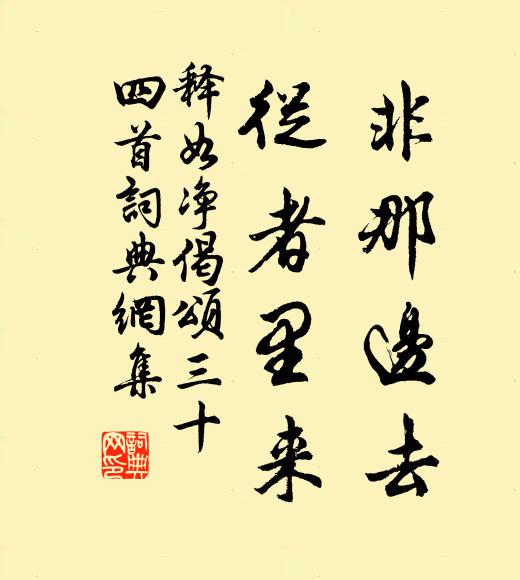 非那邊去
從者里来
释如净偈頌三十
四首詞典網集
詞典
网印